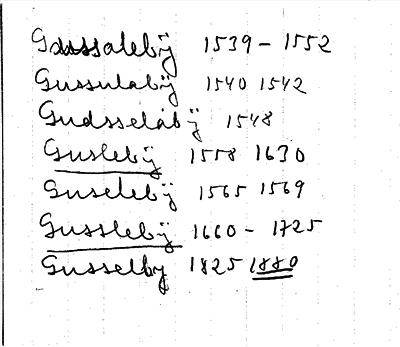 Gussalebÿ 1539 - 1552
Gussulabÿ 1540 1542
Gudsselabÿ 1548
Guslebÿ 1558 1630
Guselebÿ 1565 1569
Gusslebÿ 1660 - 1725
Gusselby 1825 1880